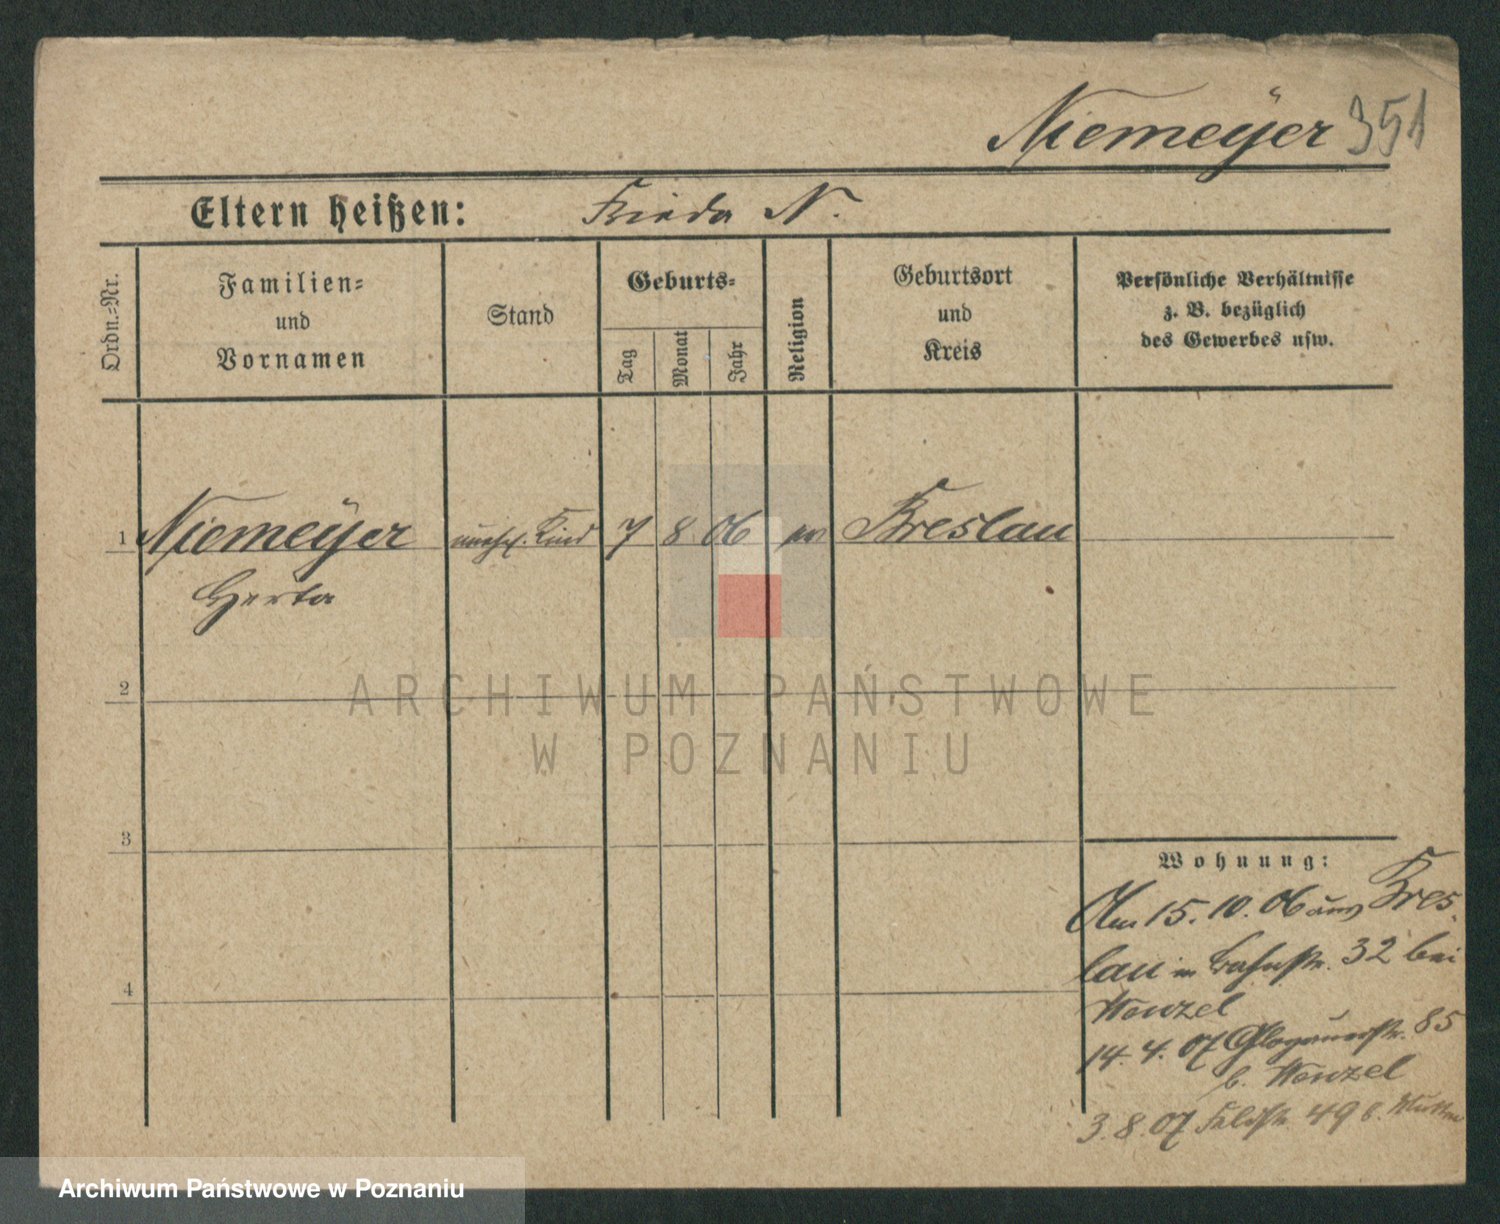 Niemeÿer 351
Eltern heißen: Frieda N.
Ordn.-Nr.
Familien-
und
Vornamen
Stand
Geburts-
Tag
Monat
Jahr
Religion
Geburtsort
und
Kreis
Persönliche Verhältnisse
z. B. bezüglich
des Gewerbes usw.
1 Niemeÿer unehel. Kind 7 8 06 Breslau
Herta
2
ARCHIWUM PAŃSTWOWE
W POZNANIU
3
Wohnung:
Am 15. 10. 06 aus Bres-
lau in Bahnstr. 32 bei
Wenzel
4
14. 4. 07 Glogauerstr. 85
b. Wenzel
3. 8. 07 Feldstr. 49 b.
Archiwum Państwowe w Poznaniu